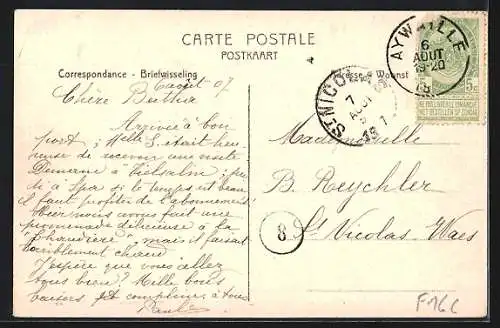 CARTE POSTALE
POSTKAART
Correspondance - Briefwisseling
Adresse - Woonst
6 août 07
Chère Bertha
Arrivée à bon
port; Melle S. était heu-
reuse de recevoir une visite
Demain à Vielsalm; jeu-
di à Spa si le temps est beau
il faut profiter de l'abonnement
Hier nous avons fait une
promenade délicieuse à la
"Chaudière", mais il faisait
terriblement chaud
J'espère que vous allez
tous bien? Mille bons
baisers et compliments à tous
AYWAILLE
6
AOUT
19-20
ST NICOLAS
7
AOUT
Mademoiselle
B. Reychler
St Nicolas-Waes
8
F16C
5c
NE PAS LIVRER LE DIMANCHE
NIET BESTELLEN OP ZONDAG